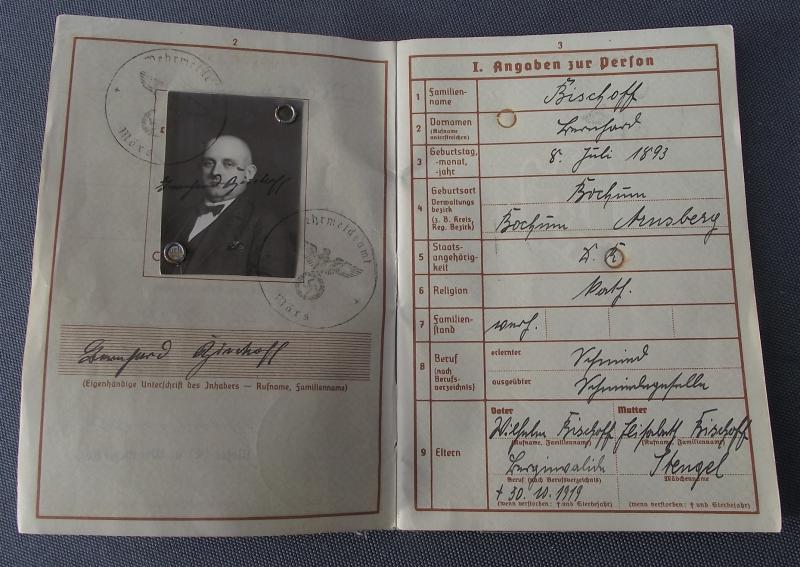 2
Wehrmeldeamt
Mörs
Bernhard Bischoff
Wehrmeldeamt
Mörs
Bernhard Bischoff
(Eigenhändige Unterschrift des Inhabers — Rufname, Familienname)
3
I. Angaben zur Person
1 Familien-
name
Bischoff
2 Vornamen
(Rufname
unterstreichen)
Bernhard
3 Geburtstag,
-monat,
-jahr
8. Juli 1893
4 Geburtsort
Verwaltungs
bezirk
(z. B. Kreis,
Reg. Bezirk)
Bochum
Bochum Arnsberg
5 Staats-
angehörig-
keit
D. R.
6 Religion
kath.
7 Familien-
stand
verh.
8 Beruf
(nach
Berufs-
verzeichnis)
erlernter Schmied
ausgeübter Schmiedegeselle
9 Eltern
Vater
Wilhelm Bischoff
(Rufname, Familienname)
Berginvalide
Beruf (nach Berufsverzeichnis)
† 30. 10. 1919
(wenn verstorben: † und Sterbejahr)
Mutter
Elisabeth Bischoff
(Rufname, Familienname)
Stengel
Mädchenname
(wenn verstorben: † und Sterbejahr)